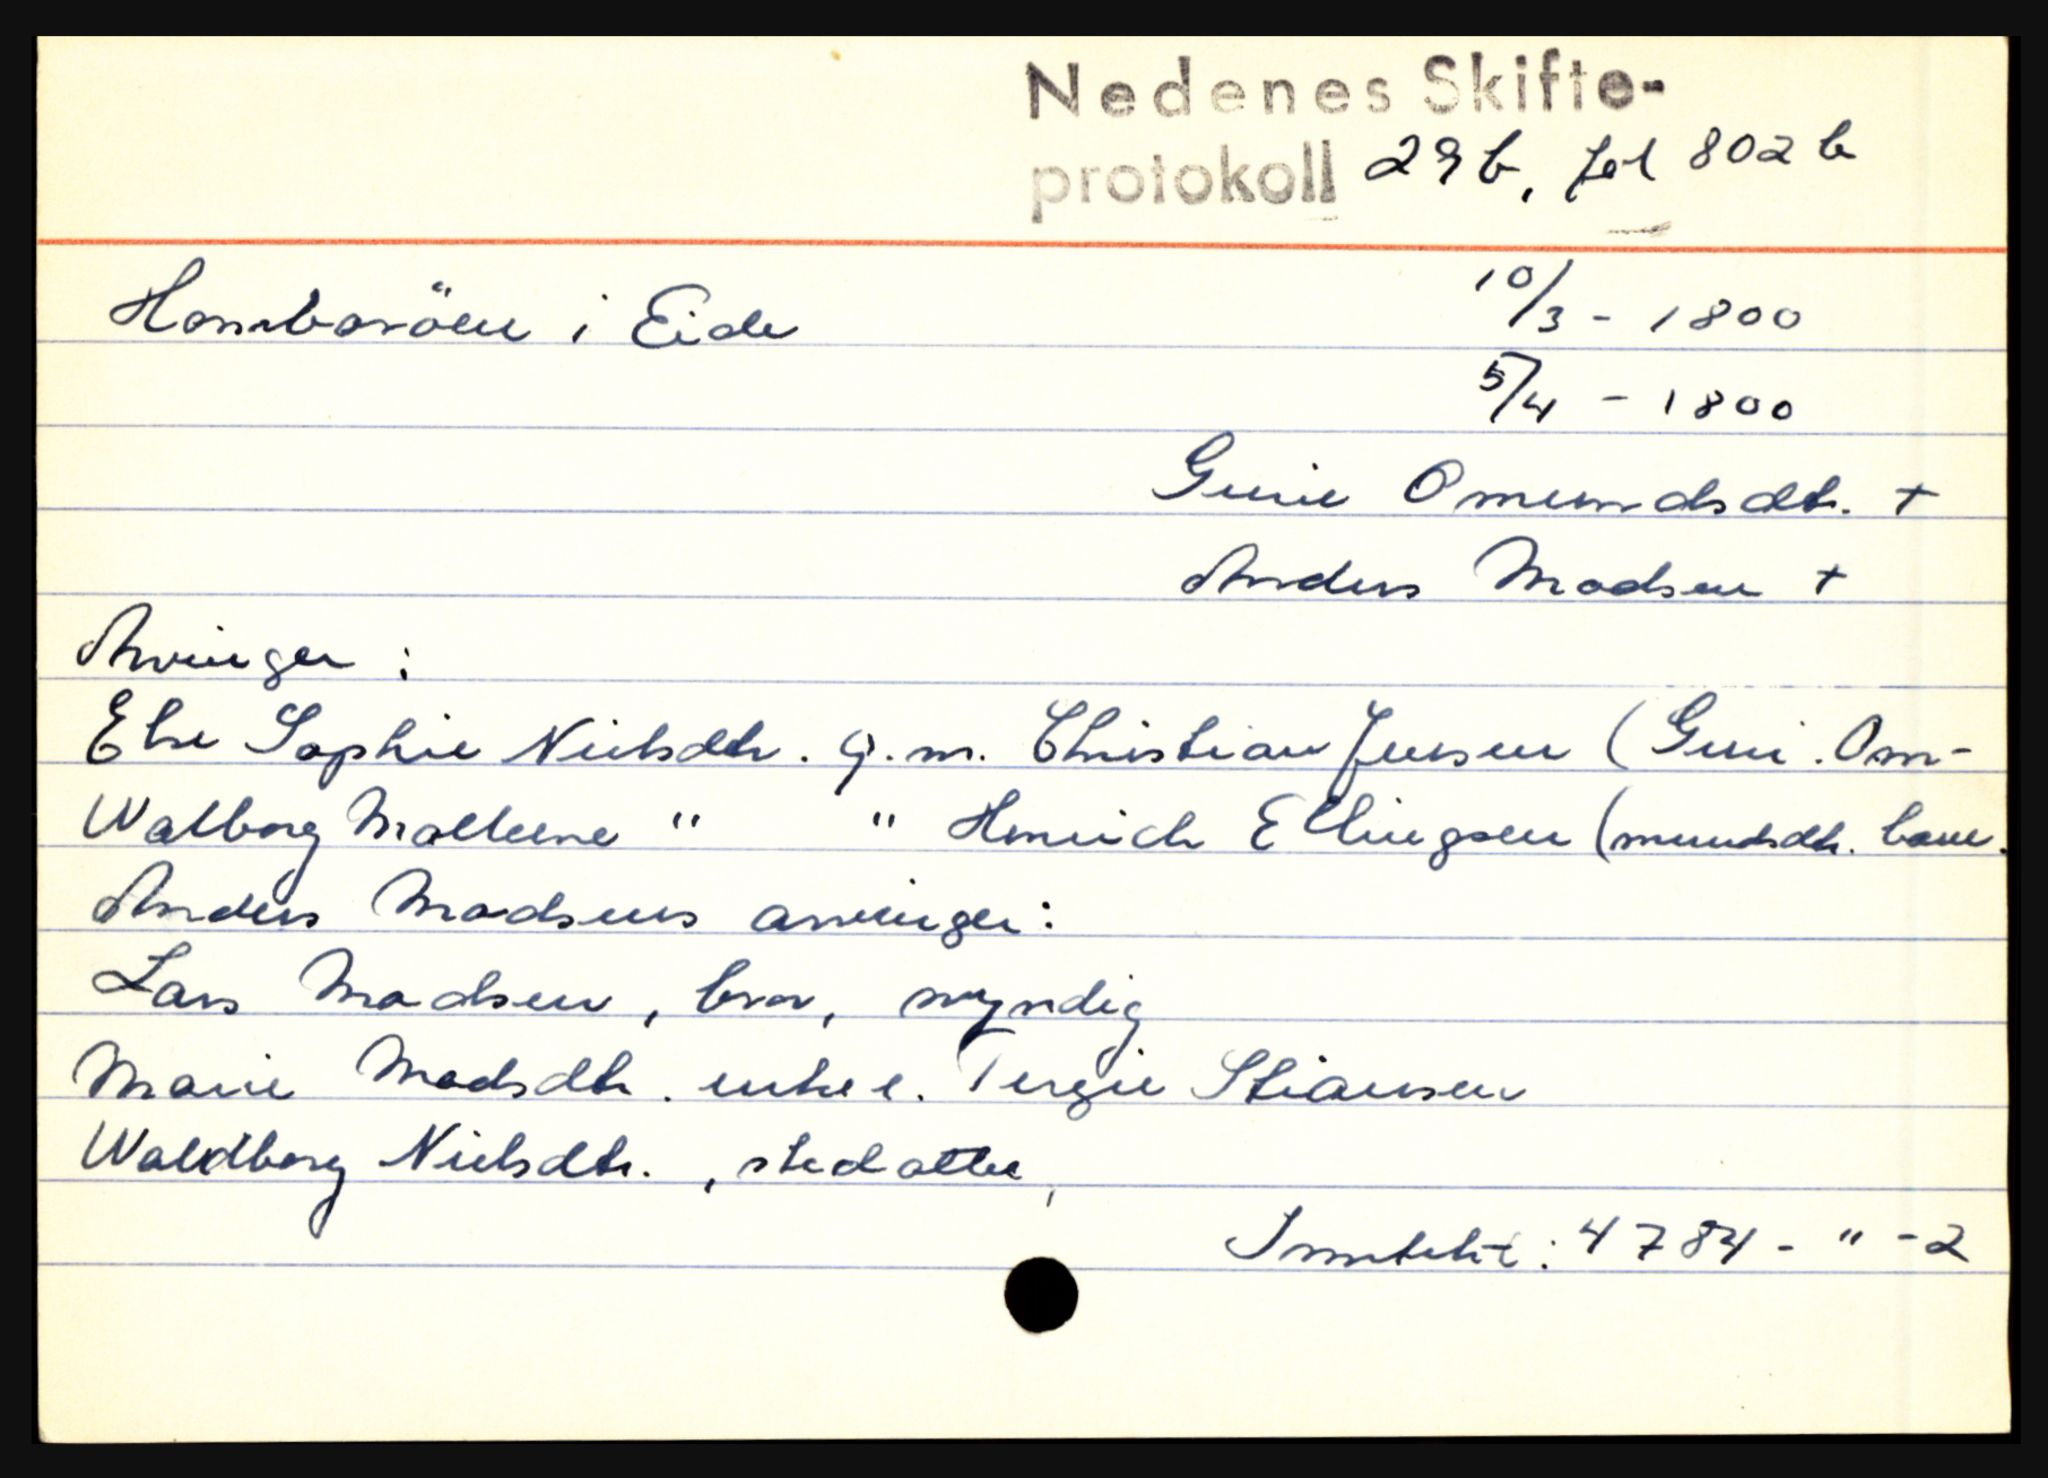 Nedenes Skifte-
protokoll 29b, fol 802 b
Hombaröen i Eide 10/3 - 1800
5/4 - 1800
Gurie Omundsdtr. +
Anders Madsen +
Arvinger :
Else Sophie Nielsdtr. g. m. Christian Jensen (Guri. Om-
Walborg Malleene " " Henrich Ellingsen (mundsdtr. barn.
Anders Madsens arvinger:
Lars Madsen, bror, myndig
Marie Madsdtr. enke e. Tergie Stiansen
Waldborg Nielsdtr., stedatter,
Inntekt: 4784 - " - 2